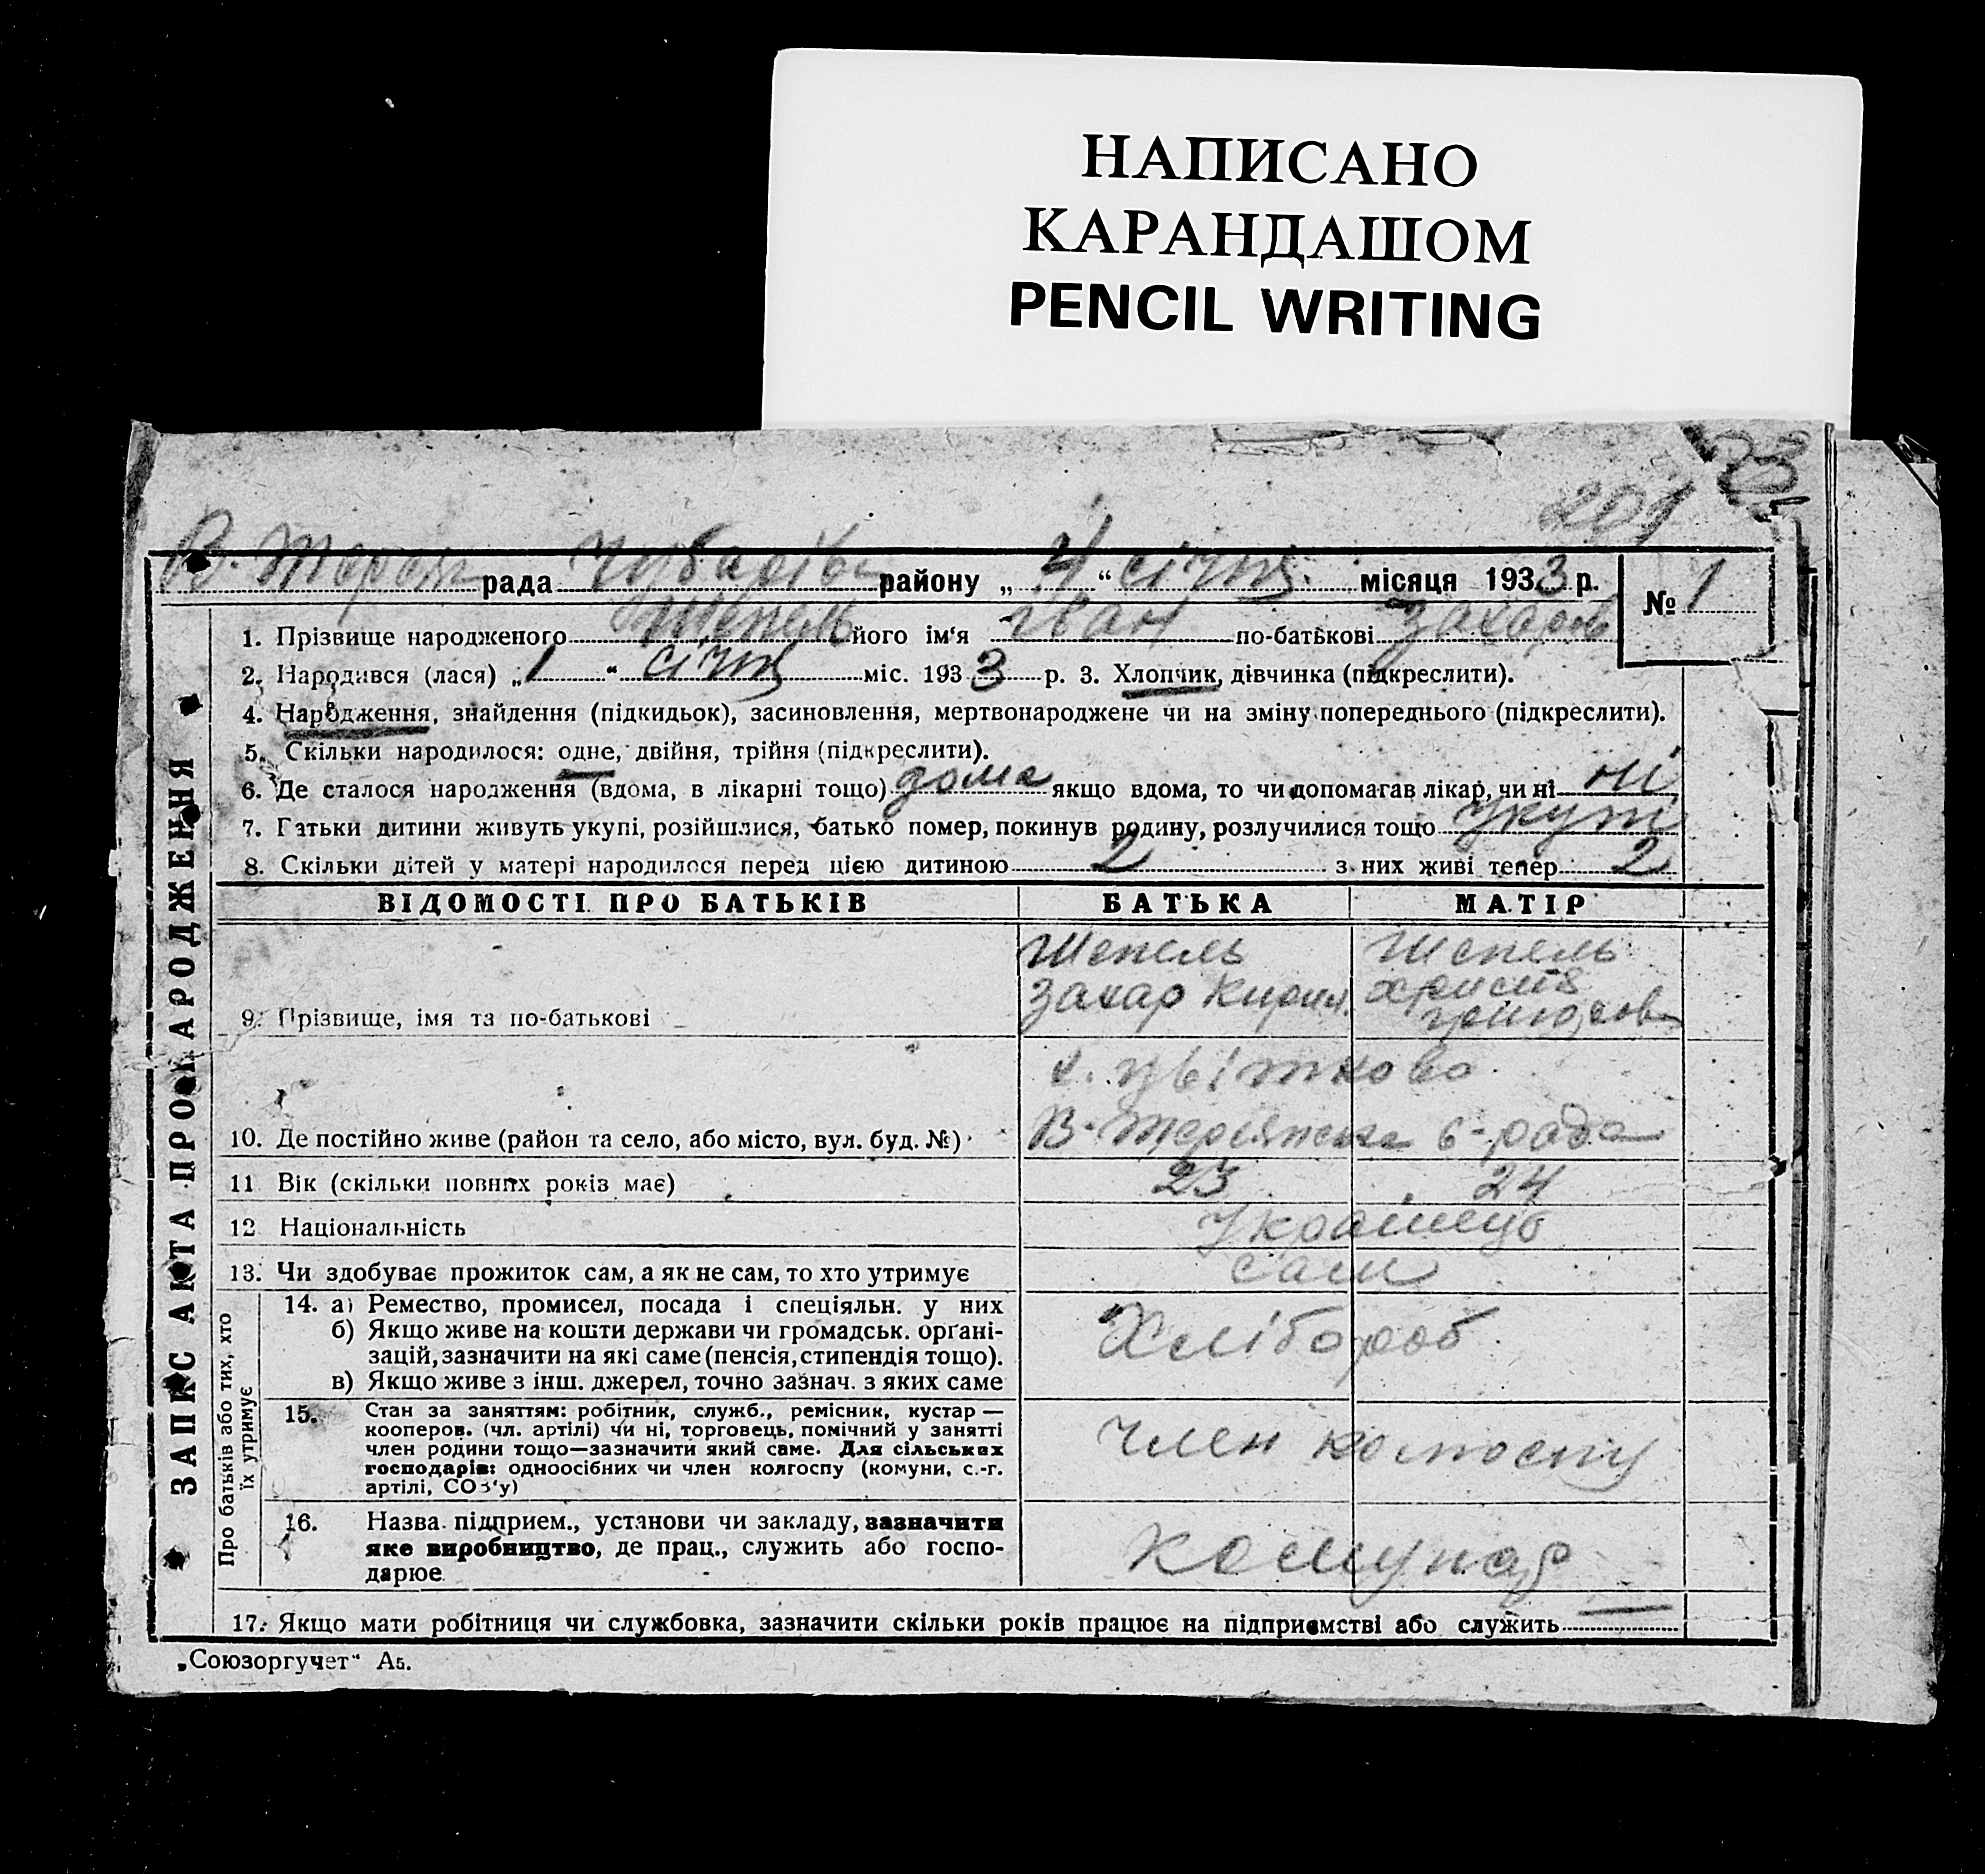 НАПИСАНО
КАРАНДАШОМ
PENCIL WRITING
201
В. Терсян рада Чубарівс району „ 4 “ січня місяця 1933 р. № 1
1. Прізвище народженого Шепель його ім‘я Іван по-батькові Захаров
2. Народився (лася) „ 1 “ січня міс. 1933 р. 3. Хлопчик, дівчинка (підкреслити).
4. Народження, знайдення (підкидьок), засиновлення, мертвонароджене чи на зміну попереднього (підкреслити).
5. Скільки народилося: одне, двійня, трійня (підкреслити).
6. Де сталося народження (вдома, в лікарні тощо) дома якщо вдома, то чи допомагав лікар, чи ні ні
7. Батьки дитини живуть укупі, розійшлися, батько помер, покинув родину, розлучилися тощо укупі
8. Скільки дітей у матері народилося перед цією дитиною 2 з них живі тепер 2
ЗАПИС АКТА ПРО НАРОДЖЕННЯ
ВІДОМОСТІ ПРО БАТЬКІВ БАТЬКА МАТІР
9. Прізвище, імя та по-батькові
Шепель
Захар Кирил.
Шепель
христя
10. Де постійно живе (район та село, або місто, вул. буд. №)
х. цвітково
В-Терсянська с-рада
11 Вік (скільки повних років має) 23 24
12 Національність Українці
13. Чи здобуває прожиток сам, а як не сам, то хто утримує сам
Про батьків або тих, хто
їх утримує
14. а) Ремество, промисел, посада і спеціяльн. у них
б) Якщо живе на кошти держави чи громадськ. орґані-
зацій, зазначити на які саме (пенсія, стипендія тощо).
в) Якщо живе з інш. джерел, точно зазнач. з яких саме
Хлібороб
15. Стан за заняттям: робітник, служб., ремісник, кустар —
кооперов. (чл. артілі) чи ні, торговець, помічний у занятті
член родини тощо—зазначити який саме. Для сільських
господарів: одноосібних чи член колгоспу (комуни, с.-г.
артілі, СОЗ‘у)
член колгоспу
16. Назва підприєм., установи чи закладу, зазначити
яке виробництво, де прац., служить або госпо-
дарює
комунар
17. Якщо мати робітниця чи службовка, зазначити скільки років працює на підприємстві або служить —
„Союзоргучет“ А5.